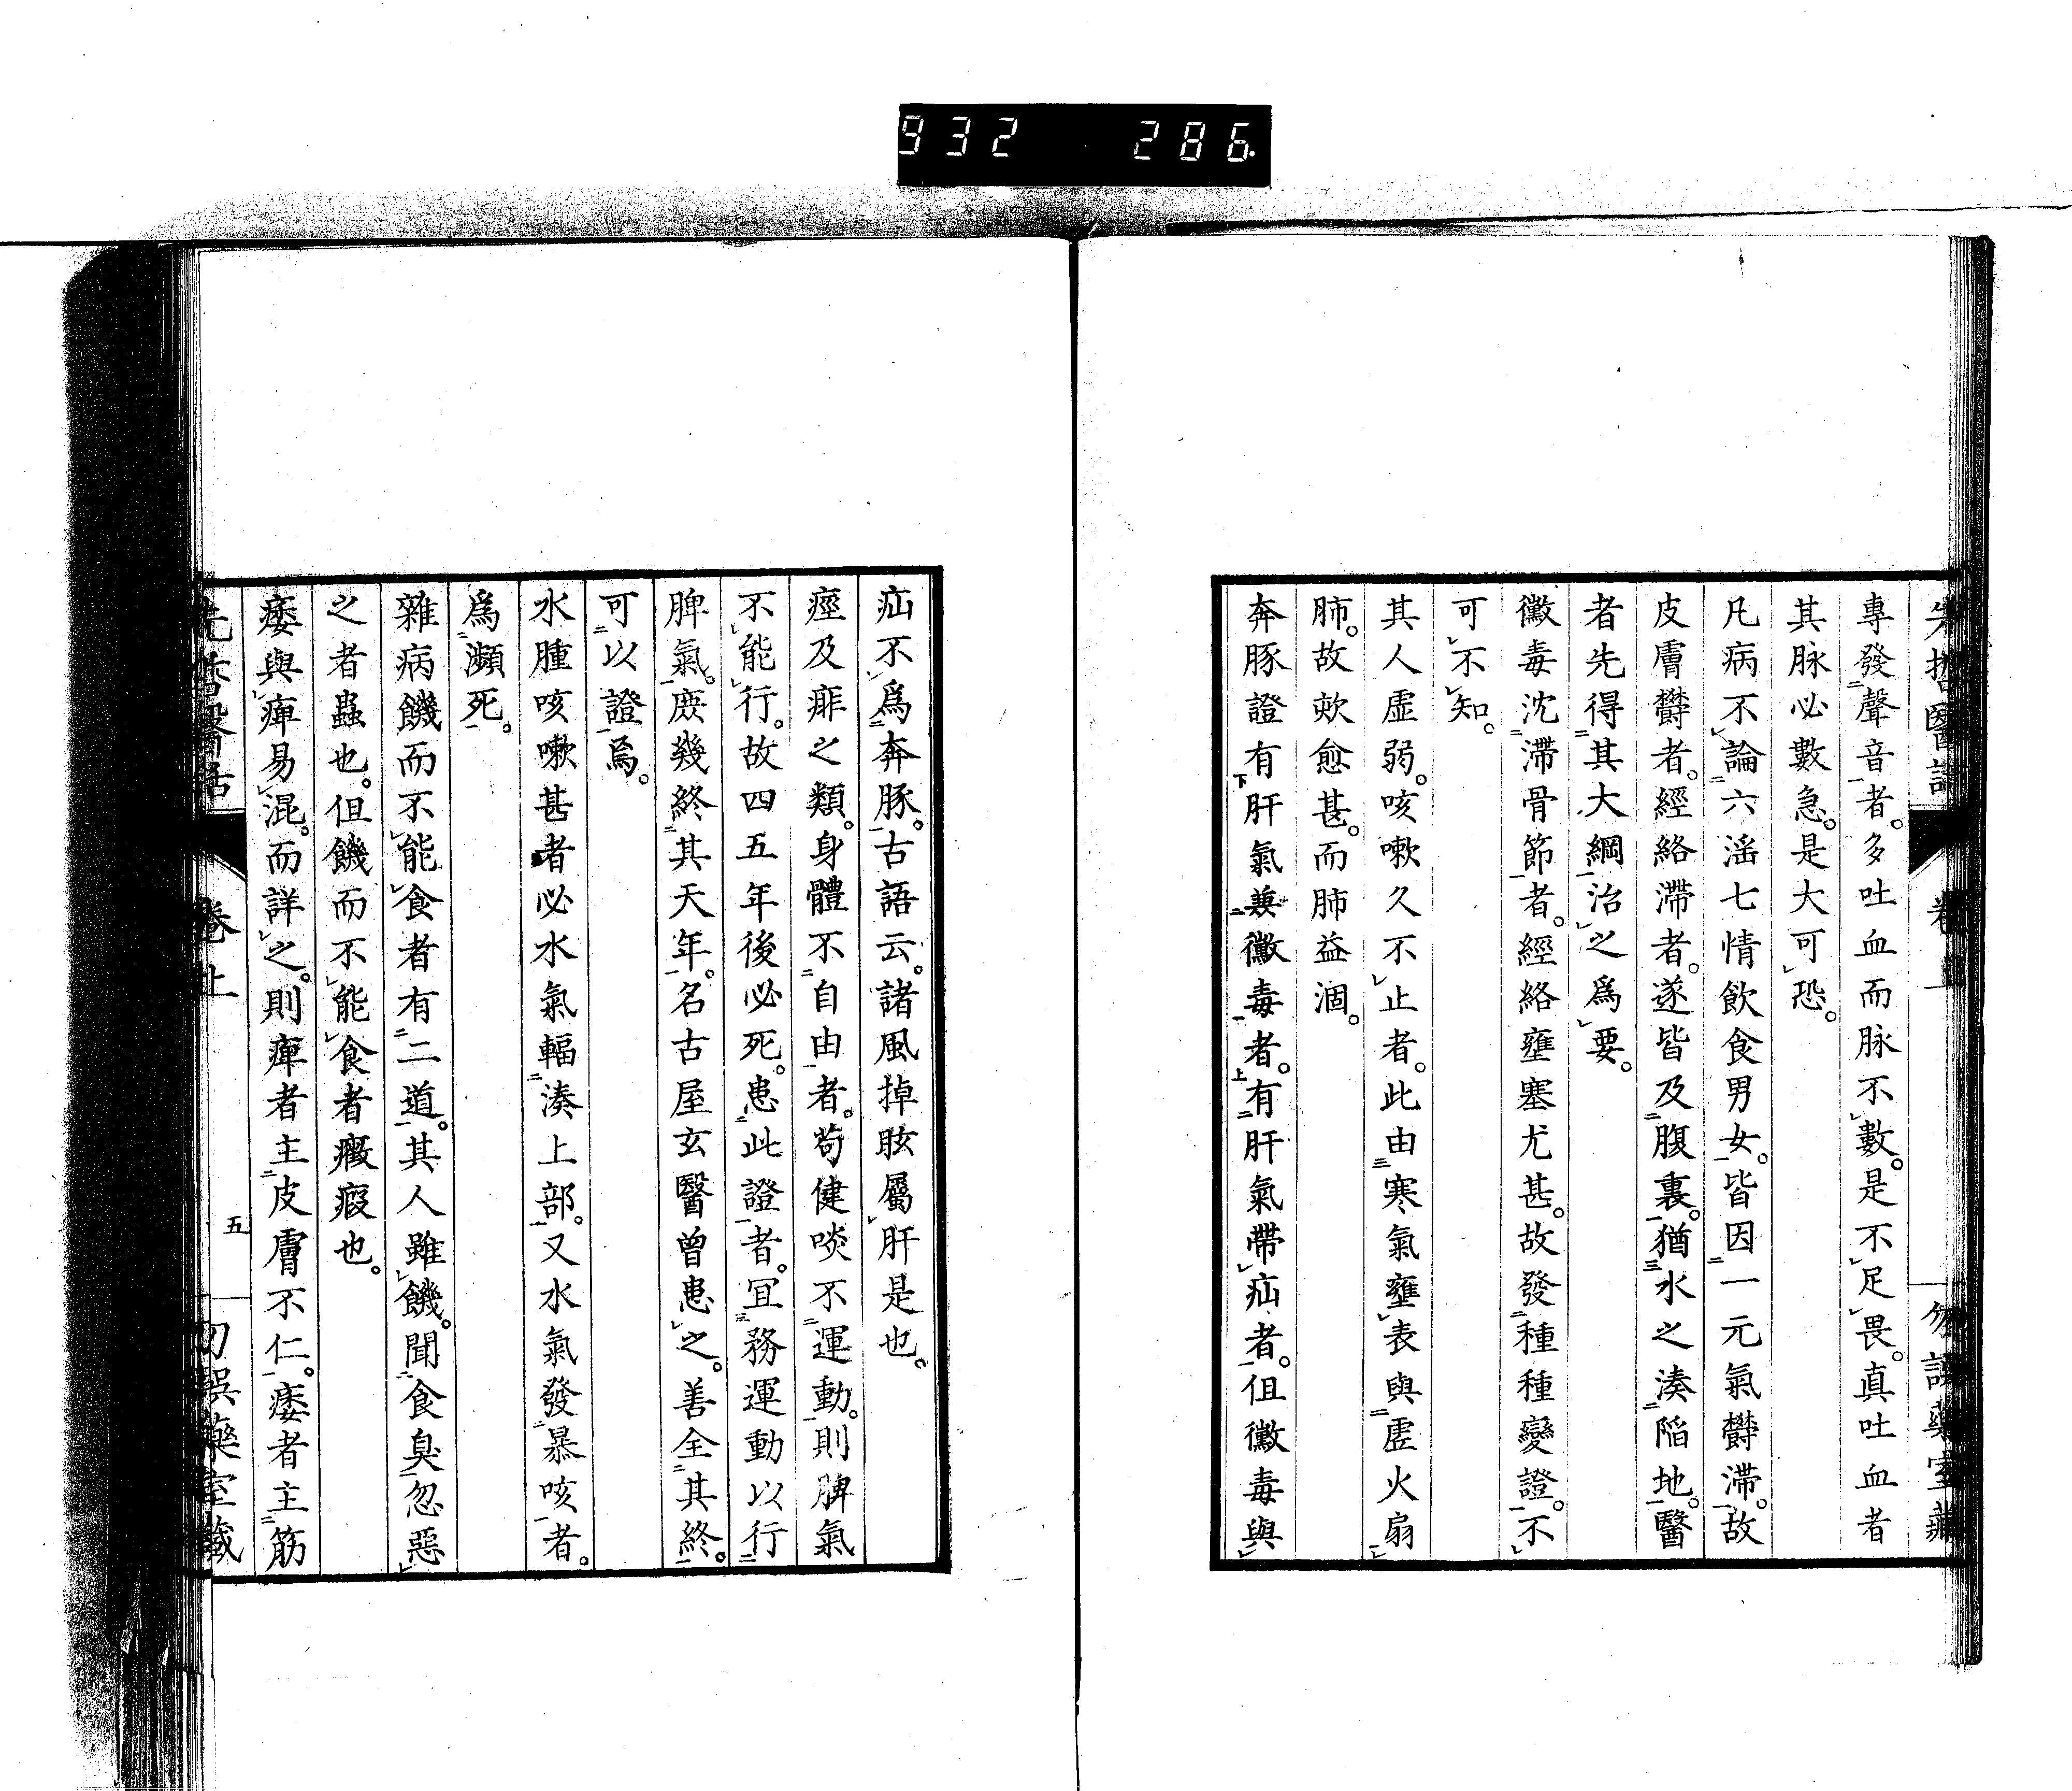 932 286
先哲醫話 卷上 勿誤藥室藏
專發聲音者。多吐血而脉不數。是不足畏。真吐血者
其脉必數急。是大可恐。
凡病不論六淫七情飲食男女。皆因一元氣欝滯。故
皮膚欝者。經絡滯者。遂皆及腹裏。猶水之湊陷地。醫
者先得其大綱治之爲要。
黴毒沈滯骨節者。經絡壅塞尤甚。故發種種變證。不
可不知。
其人虛弱。咳嗽久不止者。此由寒氣壅表與虛火扇
肺。故欬愈甚。而肺益涸。
奔豚證有肝氣兼黴毒者。有肝氣帶疝者。但黴毒與
疝不爲奔豚。古語云。諸風掉眩屬肝是也。
痙及痱之類。身體不自由者。苟健啖不運動。則脾氣
不能行。故四五年後必死。患此證者。宜務運動以行
脾氣。庶幾終其天年。名古屋玄醫曾患之。善全其終。
可以證焉。
水腫咳嗽甚者必水氣輻湊上部。又水氣發暴咳者。
爲瀕死。
雜病饑而不能食者有二道。其人雖饑。聞食臭忽惡
之者蟲也。但饑而不能食者癥瘕也。
痿與痺易混。而詳之。則痺者主皮膚不仁。痿者主筋
先哲醫話 卷上 五 勿誤藥室藏